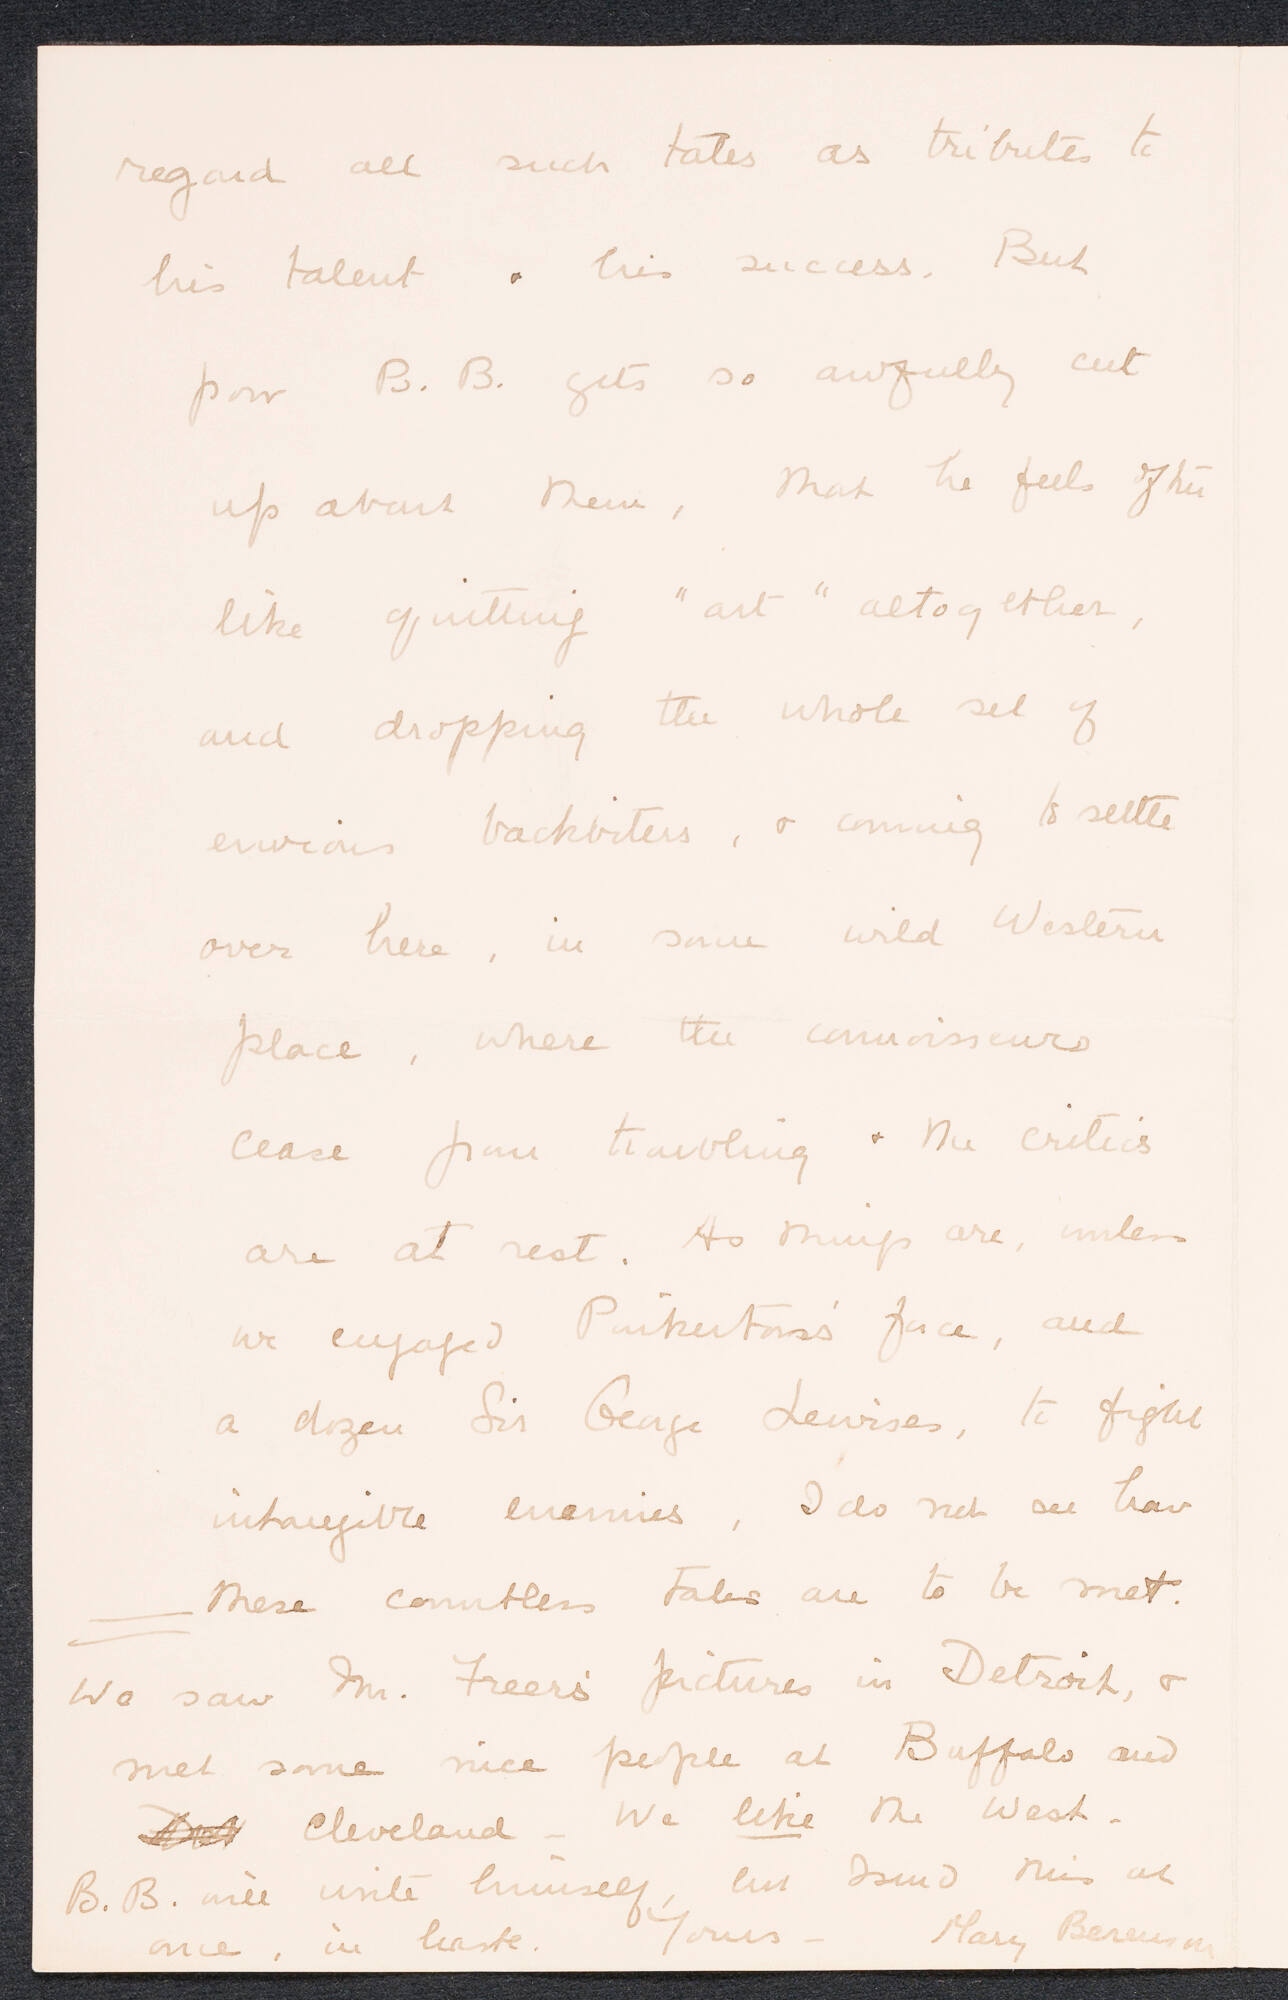 regard all such tales as tributes to
his talent & his success. But
poor B. B. gets so awfully cut
up about them, that he feels often
like quitting "art" altogether,
and dropping the whole set of
envious backbiters, & coming to settle
over here, in some wild Western
place, where the connoisseurs
cease from troubling & the critics
are at rest. As things are, unless
we engaged Pinkerton's force, and
a dozen Sir George Lewises, to fight
intangible enemies, I do not see how
these countless tales are to be met.
We saw Mr. Freer's pictures in Detroit, &
met some nice people at Buffalo and
Cleveland - We like the West -
B. B. will write himself, but I send this at
once, in haste. Yours - Mary Berenson